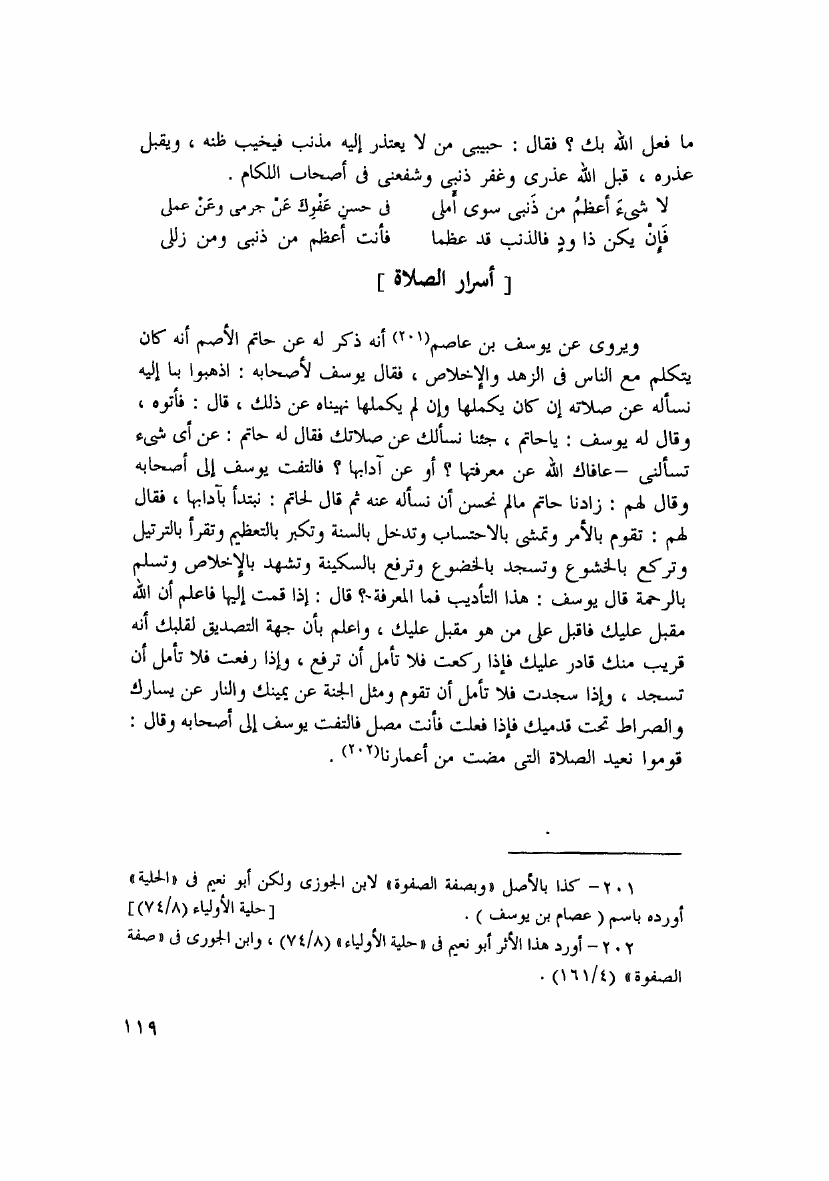 ما فعل الله بك ؟ فقال : حبيبى من لا يعتذر إليه مذنب فيخيب ظنه ، ويقبل
عذره ، قبل الله عذرى وغفر ذنبى وشفعنى فى أصحاب اللكام .
لا شىءَ أعظمُ من ذَنبى سوى أَملى فى حسنِ عَفْوِكَ عَنْ جرمى وعَنْ عملى
فَإِنْ يكن ذا ودٍ فالذنب قد عظما فأنت أعظم من ذنبى ومن زللى
[ أسرار الصلاة ]
ويروى عن يوسف بن عاصم(٢٠١) أنه ذكر له عن حاتم الأصم أنه كان
يتكلم مع الناس فى الزهد والإخلاص ، فقال يوسف لأصحابه : اذهبوا بنا إليه
نسأله عن صلاته إن كان يكملها وإن لم يكملها نهيناه عن ذلك ، قال : فأتوه ،
وقال له يوسف : ياحاتم ، جئنا نسألك عن صلاتك فقال له حاتم : عن أى شىء
تسألنى –عافاك الله عن معرفتها ؟ أو عن آدابها ؟ فالتفت يوسف إلى أصحابه
وقال لهم : زادنا حاتم مالم نحسن أن نسأله عنه ثم قال لحاتم : نبتدأ بآدابها ، فقال
لهم : تقوم بالأمر وتمشى بالاحتساب وتدخل بالسنة وتكبر بالتعظيم وتقرأ بالترتيل
وتركع بالخشوع وتسجد بالخضوع وترفع بالسكينة وتشهد بالإخلاص وتسلم
بالرحمة قال يوسف : هذا التأديب فما المعرفة ؟ قال : إذا قمت إليها فاعلم أن الله
مقبل عليك فاقبل على من هو مقبل عليك ، واعلم بأن جهة التصديق لقلبك أنه
قريب منك قادر عليك فإذا ركعت فلا تأمل أن ترفع ، وإذا رفعت فلا تأمل أن
تسجد ، وإذا سجدت فلا تأمل أن تقوم ومثل الجنة عن يمينك والنار عن يسارك
والصراط تحت قدميك فإذا فعلت فأنت مصل فالتفت يوسف إلى أصحابه وقال :
قوموا نعيد الصلاة التى مضت من أعمارنا(٢٠٢) .
٢٠١ – كذا بالأصل «وبصفة الصفوة» لابن الجوزى ولكن أبو نعيم فى «الحلية»
أورده باسم ( عصام بن يوسف ) . [حلية الأولياء (٧٤/٨)]
٢٠٢ – أورد هذا الأثر أبو نعيم فى «حلية الأولياء» (٧٤/٨) ، وابن الجورى فى «صفة
الصفوة» (١٦١/٤) .
١١٩